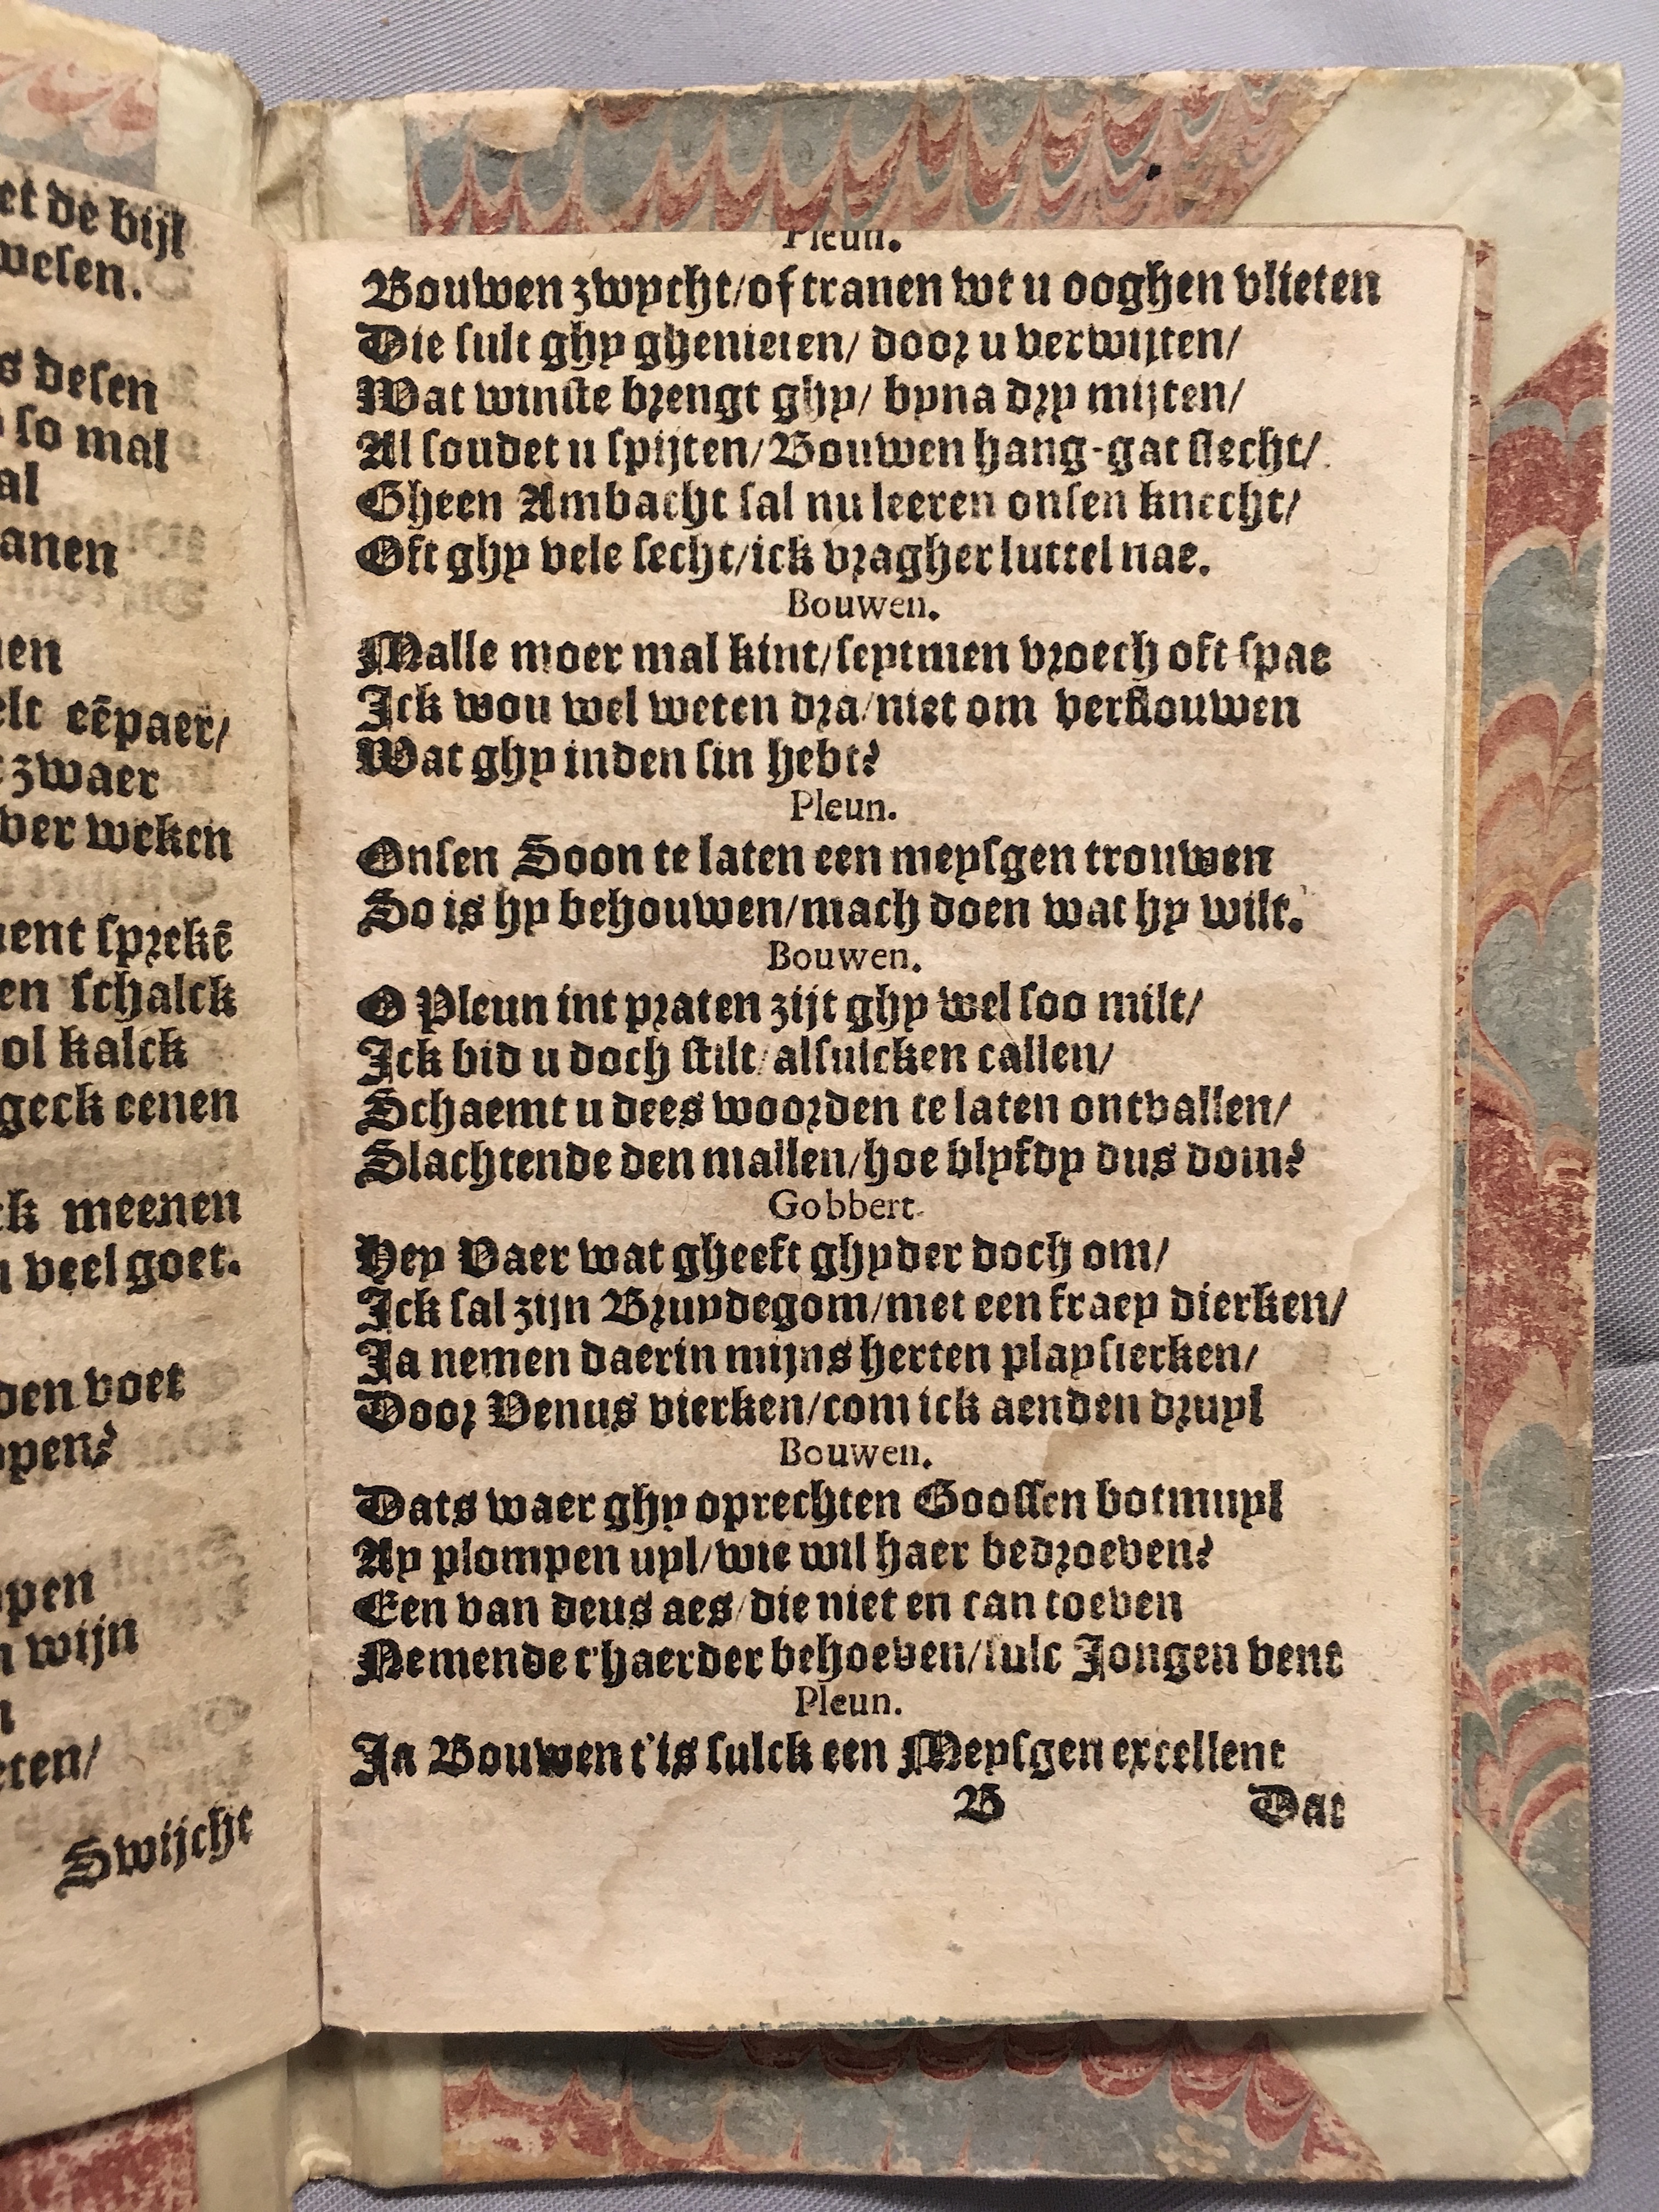 et de bijl
wesen.
s desen
so mal
al
anen
en
elt eēpaer/
zwaer
ver weken
ent sprekē
en schalck
ol kalck
geck eenen
ck meenen
veel goet.
den voet
open?
open
wijn
eten/
Swijcht
Pleun.
Bouwen zwycht/of tranen wt u ooghen vlieten
Die sult ghy ghenieten/ door u verwijten/
Wat winste brengt ghy/ byna dry mijten/
Al soudet u spijten/Bouwen hang-gat slecht/
Gheen Ambacht sal nu leeren onsen knecht/
Oft ghy vele secht/ick vragher luttel nae.
Bouwen.
Malle moer mal kint/seytmen vroech oft spae
Ick wou wel weten dra/niet om verflouwen
Wat ghy inden sin hebt?
Pleun.
Onsen Soon te laten een meysgen trouwen
So is hy behouwen/mach doen wat hy wilt.
Bouwen.
O Pleun int praten zijt ghy wel soo milt/
Ick bid u doch stilt/alsulcken callen/
Schaemt u dees woorden te laten ontvallen/
Slachtende den mallen/hoe blyfdy dus dom?
Gobbert.
Hey Vaer wat gheeft ghyder doch om/
Ick sal zijn Bruydegom/met een fraey dierken/
Ja nemen daerin mijns herten playsierken/
Door Venus vierken/com ick aenden druyl
Bouwen.
Dats waer ghy oprechten Goossen botmuyl
Ay plompen uyl/wie wil haer bedroeven?
Een van deus aes/die niet en can toeven
Nemende t'haerder behoeven/sulc Jongen vent
Pleun.
Ja Bouwen t'is sulck een Meysgen excellent
B
Dat